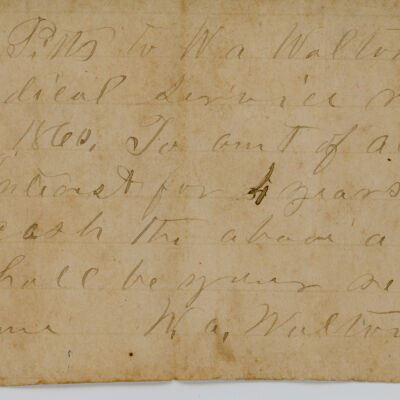 Pitts to W a Walton
dical service
1860, To amt of a
ntrest for 4 years
cash the above a
hall be your se
me W, a, Walton